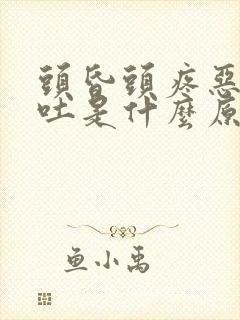 頭昏頭疼惡
吐是什麼原
鱼小禹